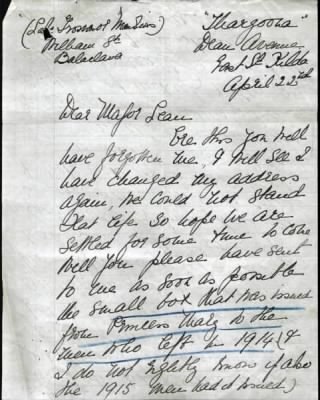 (Late Grosvenor Mansions)
William St
Balaclava
"Thurgoona"
Dean Avenue
East St Kilda
April 22nd
Dear Major Lean
Ere this you will
have forgotten me, I will see I
have changed my address
again, we could not stand
that life so hope we are
settled for some time to come
Will you please have sent
to me as soon as possible
the small box that was issued
from Princess Mary to the
men who left in 1914 (&
I do not rightly know if also
the 1915 men had it issued)